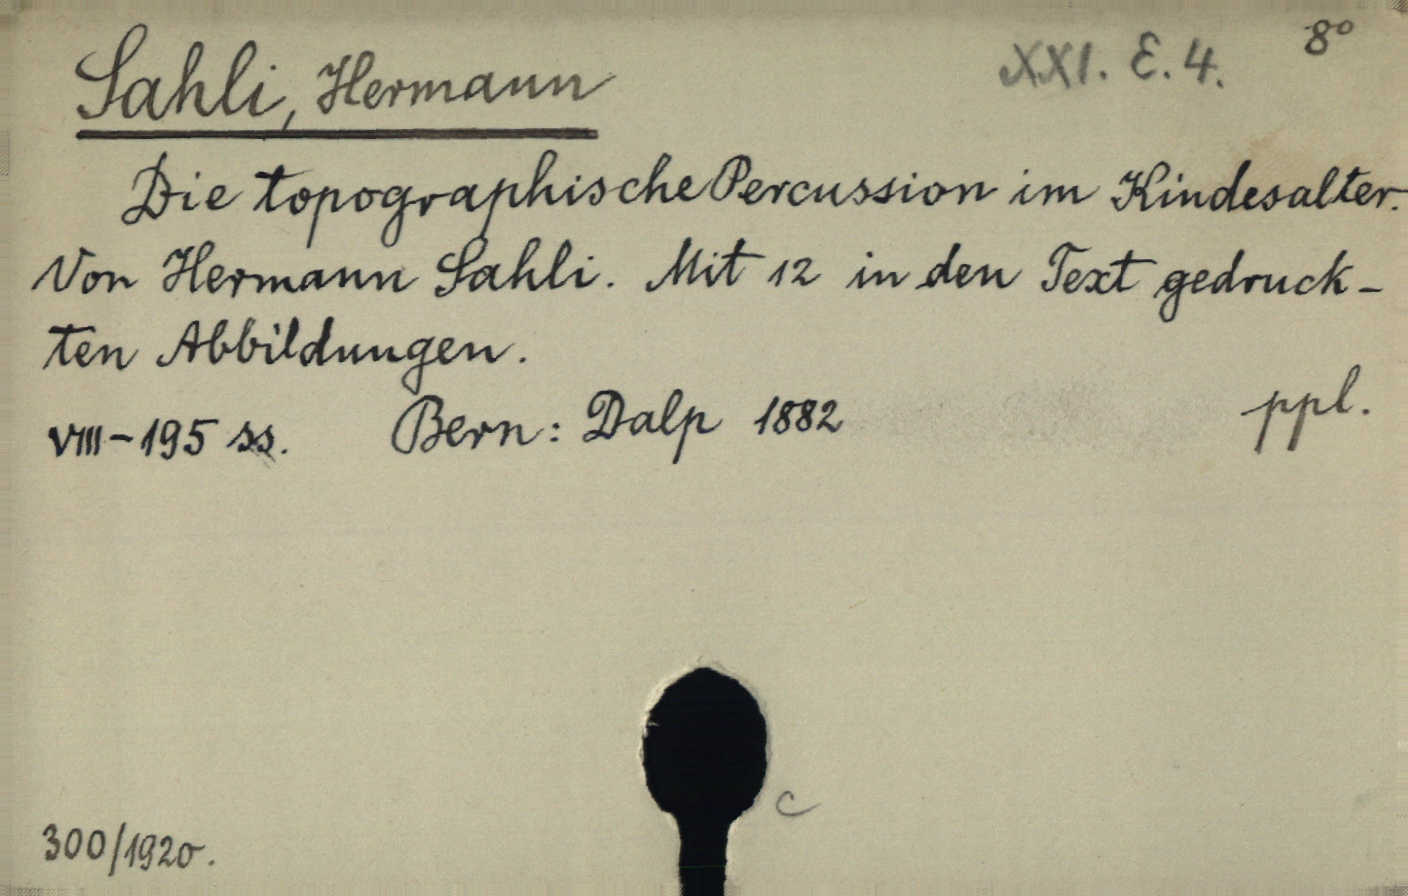 Sahli, Hermann XXI. E. 4. 8°
Die topographische Percussion im Kindesalter.
Von Hermann Sahli. Mit 12 in den Text gedruck-
ten Abbildungen.
VIII-195 ss. Bern: Dalp 1882 ppl.
c
300/1920.